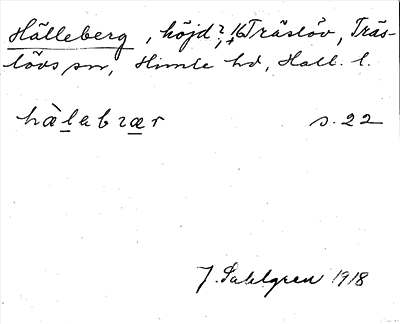 Hälleberg, höjd?, Träslöv, Träs-
lövs sn, Himle hd, Hall. l.
hælabrær s. 22
J. Sahlgren 1918